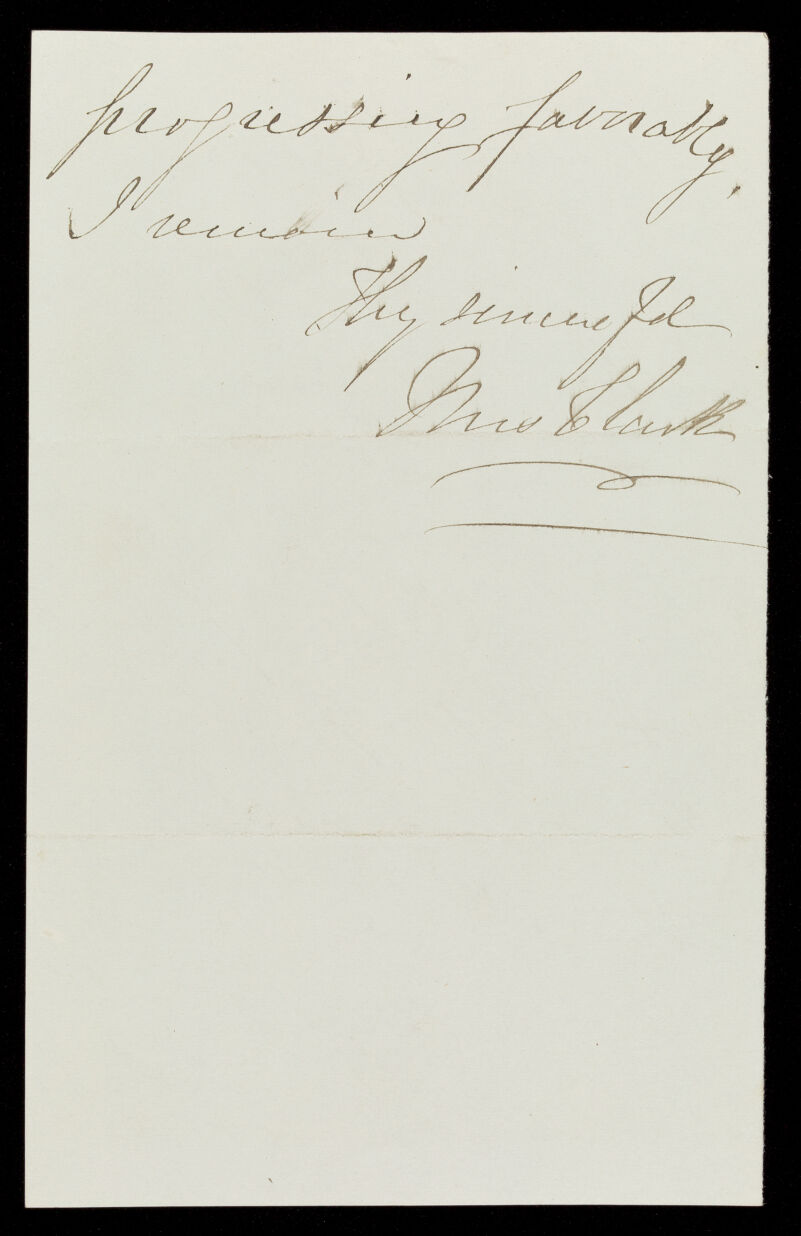 progressing favorably.
I remain
Thy sincere fd
Mrs Clark